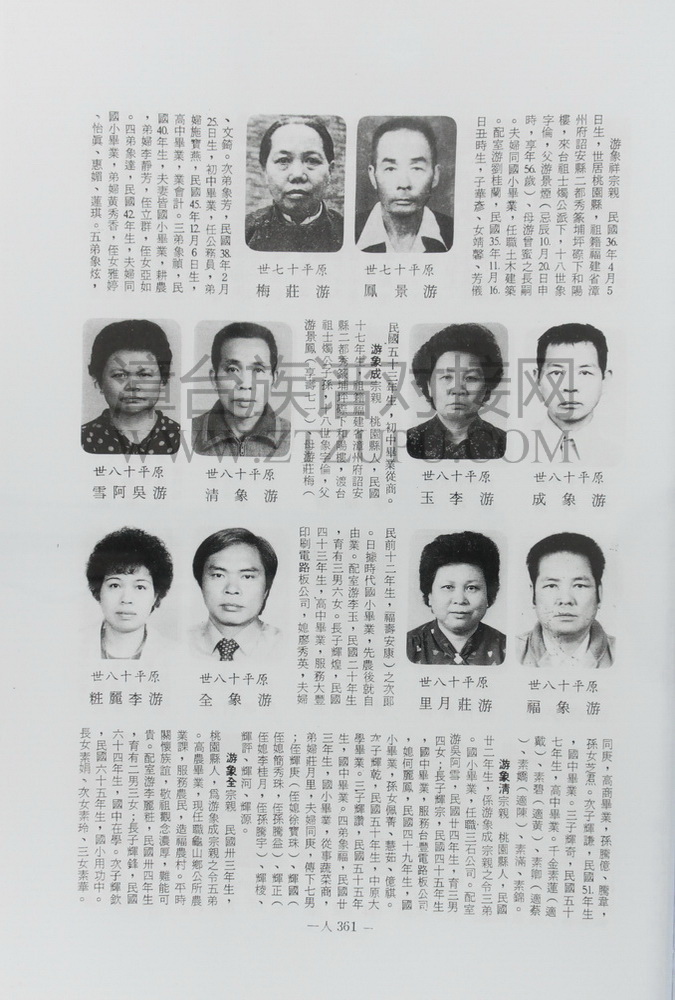 游象祥宗親　民國36年4月5
日生，世居桃園縣，祖籍福建省漳
州府詔安縣二都秀篆埔坪磜下和陽
樓，來台祖士燭公派下，十八世象
字倫，父游景煙（忌辰10月20日申
時，享年56歲）、母游曾蜜之長嗣
。夫婦同國小畢業，任職土木建築
。配室游劉桂蘭，民國35年11月16
日丑時生，子華彥、女靖馨、芳儀
、文錡。次弟象芳，民國38年2月
25日生，初中畢業，任公務員，弟
婦施寶燕，民國45年12月6日生，
高中畢業，業會計。三弟象顯，民
國40年生，夫妻皆國小畢業，耕農
，弟婦李靜芳，侄立群，侄女亞如
。四弟象達，民國42年生，夫婦同
國小畢業，弟婦黃秀香，侄女雅婷
、怡眞、惠媚、蓮琪。五弟象炫，
世七十平原
鳳景游
世七十平原
梅莊游
民國五十三年生，初中畢業從商。
游象成宗親　桃園縣人，民國
十七年生，祖籍福建省漳州府詔安
縣二都秀篆埔坪磜下和陽樓，渡台
祖士燭公子孫，十八世象字倫，父
游景鳳（享壽七一）、母游莊梅（
世八十平原
成象游
世八十平原
玉李游
世八十平原
清象游
世八十平原
雪阿吳游
民前十二年生，福壽安康）之次郎
。日據時代國小畢業，先農後就自
由業。配室游李玉，民國二十年生
，育有三男六女。長子輝煌，民國
四十三年生，高中畢業，服務大豐
印刷電路板公司，媳廖秀英，夫婦
世八十平原
福象游
世八十平原
里月莊游
世八十平原
全象游
世八十平原
粧麗李游
同庚，高商畢業，孫騰億、騰韋，
孫女芝君。次子輝謙，民國51年生
，國中畢業。三子輝奇，民國五十
七年生，高中畢業。千金素蓮（適
戴）、素碧（適黃）、素卿（適蔡
）、素嬌（適陳）、素滿、素錦。
游象清宗親　桃園縣人，民國
廿二年生，係游象成宗親之令三弟
。國小畢業，任職三石公司。配室
游吳阿雪，民國廿四年生，育三男
四女；長子輝宗，民國四十五年生
，國中畢業，服務台豐電路板公司
，媳何麗鳳，民國四十九年生，國
小畢業，孫女佩菁、慧如、億祺。
次子輝乾，民國五十年生，中原大
學畢業。三子輝讚，民國五十五年
生，國中畢業。四弟象福，民國廿
三年生，國小畢業，從事蔬菜商，
弟婦莊月里，夫婦同庚，傳下七男
；侄輝庚（侄媳徐寶珠）、輝國（
侄媳簡秀珠，侄孫騰益）、輝正（
侄媳李桂月，侄孫騰宇）、輝稜、
輝評、輝河、輝源。
游象全宗親　民國卅三年生，
桃園縣人，爲游象成宗親之令五弟
。高農畢業，現任職龜山鄉公所農
業課，服務農民，造福農村。平時
關懷族誼，敬祖觀念濃厚，難能可
貴。配室游李麗粧，民國卅四年生
，育有二男三女；長子輝鋒，民國
六十四年生，國中在學。次子輝欽
，民國六十五年生，國小用功中。
長女素娟、次女素玲、三女素華。
－人361－
漳台族谱对接网
WWW.ZTZUPU.COM